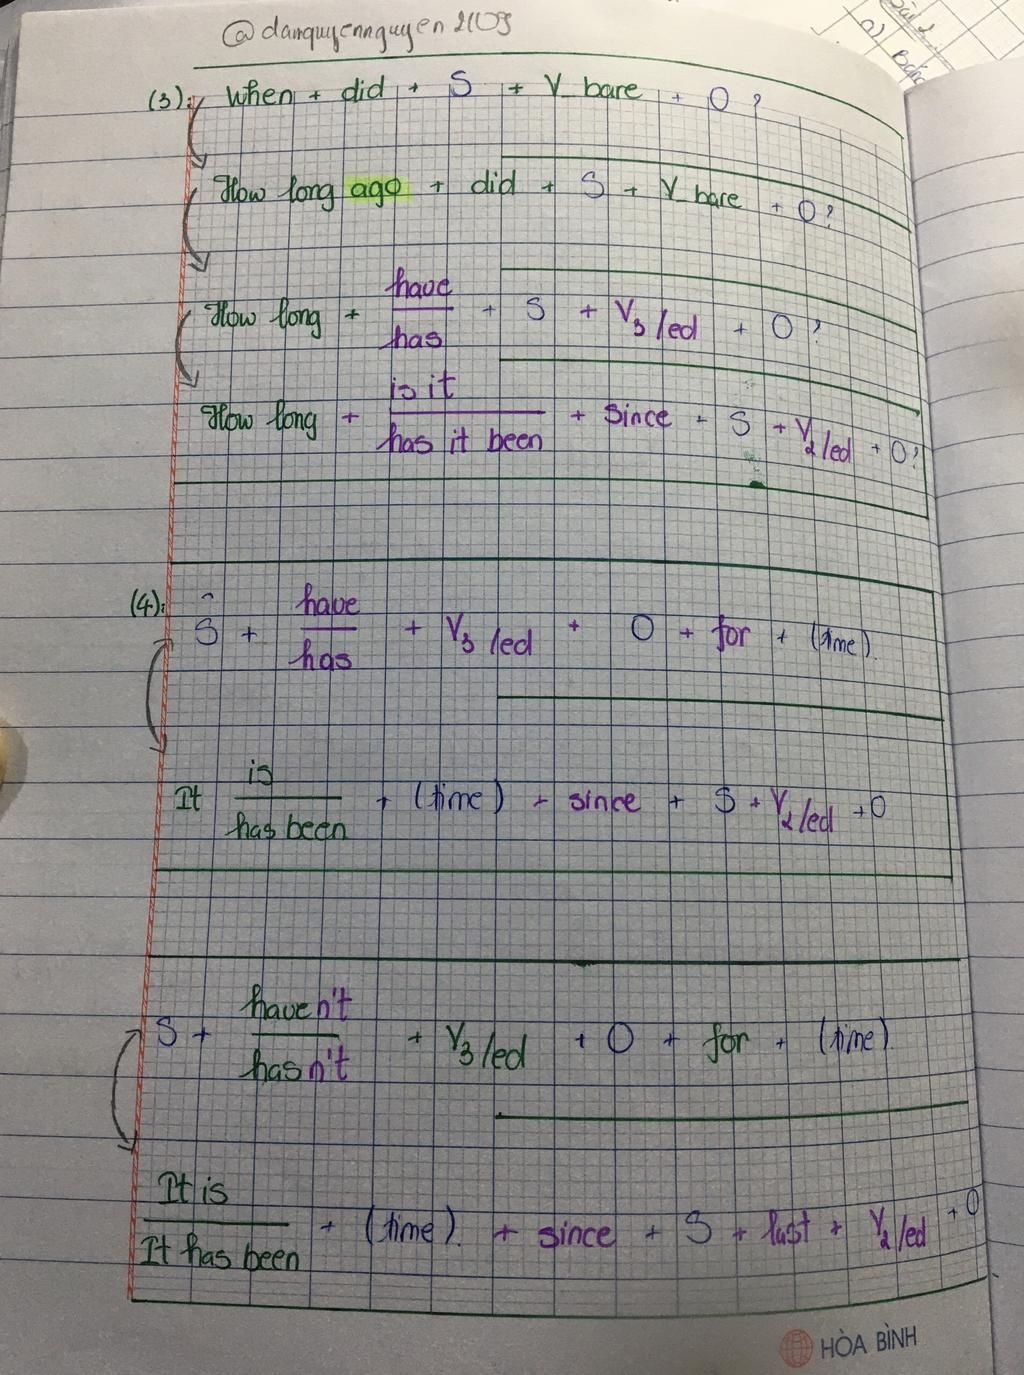 @danquyennguyen2109
Bài 2
a) Bảng
(3): When + did + S + V_bare + O ?
How long ago + did + S + V_bare + O?
How long + have/has + S + V3/ed + O ?
How long + is it/has it been + since + S + V2/ed + O?
(4): S + have/has + V3/ed + O + for + (time).
It is/has been + (time) + since + S + V2/ed + O
S + haven't/hasn't + V3/ed + O + for + (time).
It is/It has been + (time). + since + S + last + V2/ed + O
HÒA BÌNH